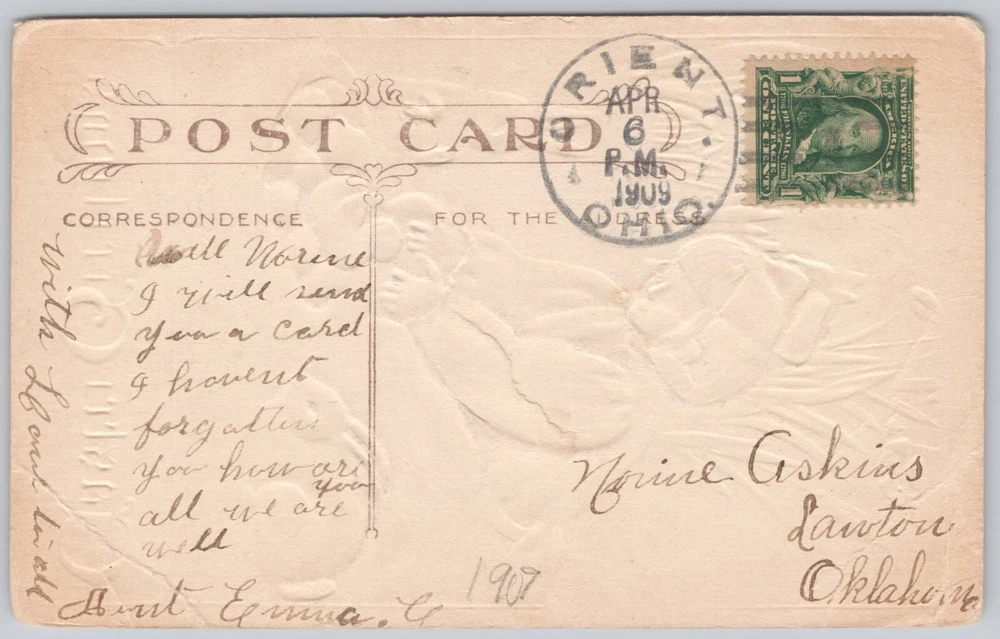 POST CARD
CORRESPONDENCE
FOR THE ADDRESS
ORIENT.
APR
6
P.M.
1909
OHIO.
1
1
Well Norine
I will send
you a card
I havent
forgotten
you how are
you
all we are
well
Aunt Emma. C
With Love to all
1909
Norine Askins
Lawton
Oklahoma